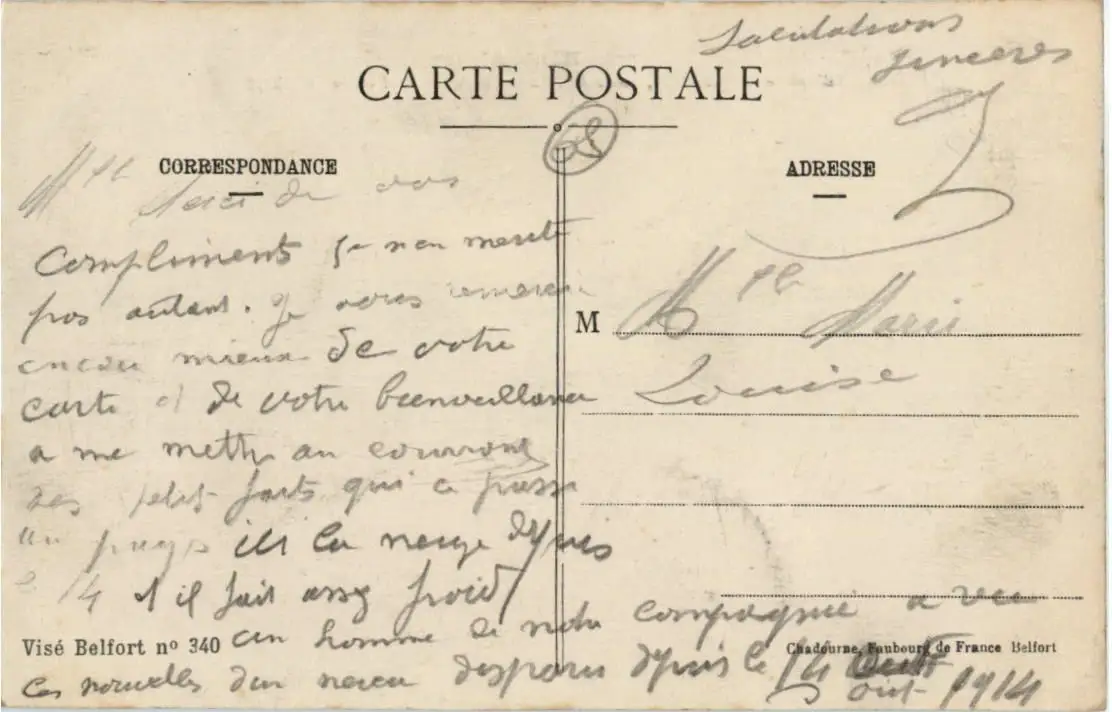 Salutations
sinceres
CARTE POSTALE
68
CORRESPONDANCE
ADRESSE
Mlle Merci de vos
Compliments Je n'en merite
pas autant. Je vous remercie
encore mieux de votre
carte et de votre bienveillance
a me mettre au courrant
des petit faits qui ce passe
au pays ici la neige depuis
le 14 et il fait assez froid
un homme de notre compagnie a vu
les nouvelles d'un neveu disparu depuis le 14
aout 1914
M Mlle Marie
Louise
Visé Belfort nº 340
Chadourne, Faubourg de France Belfort